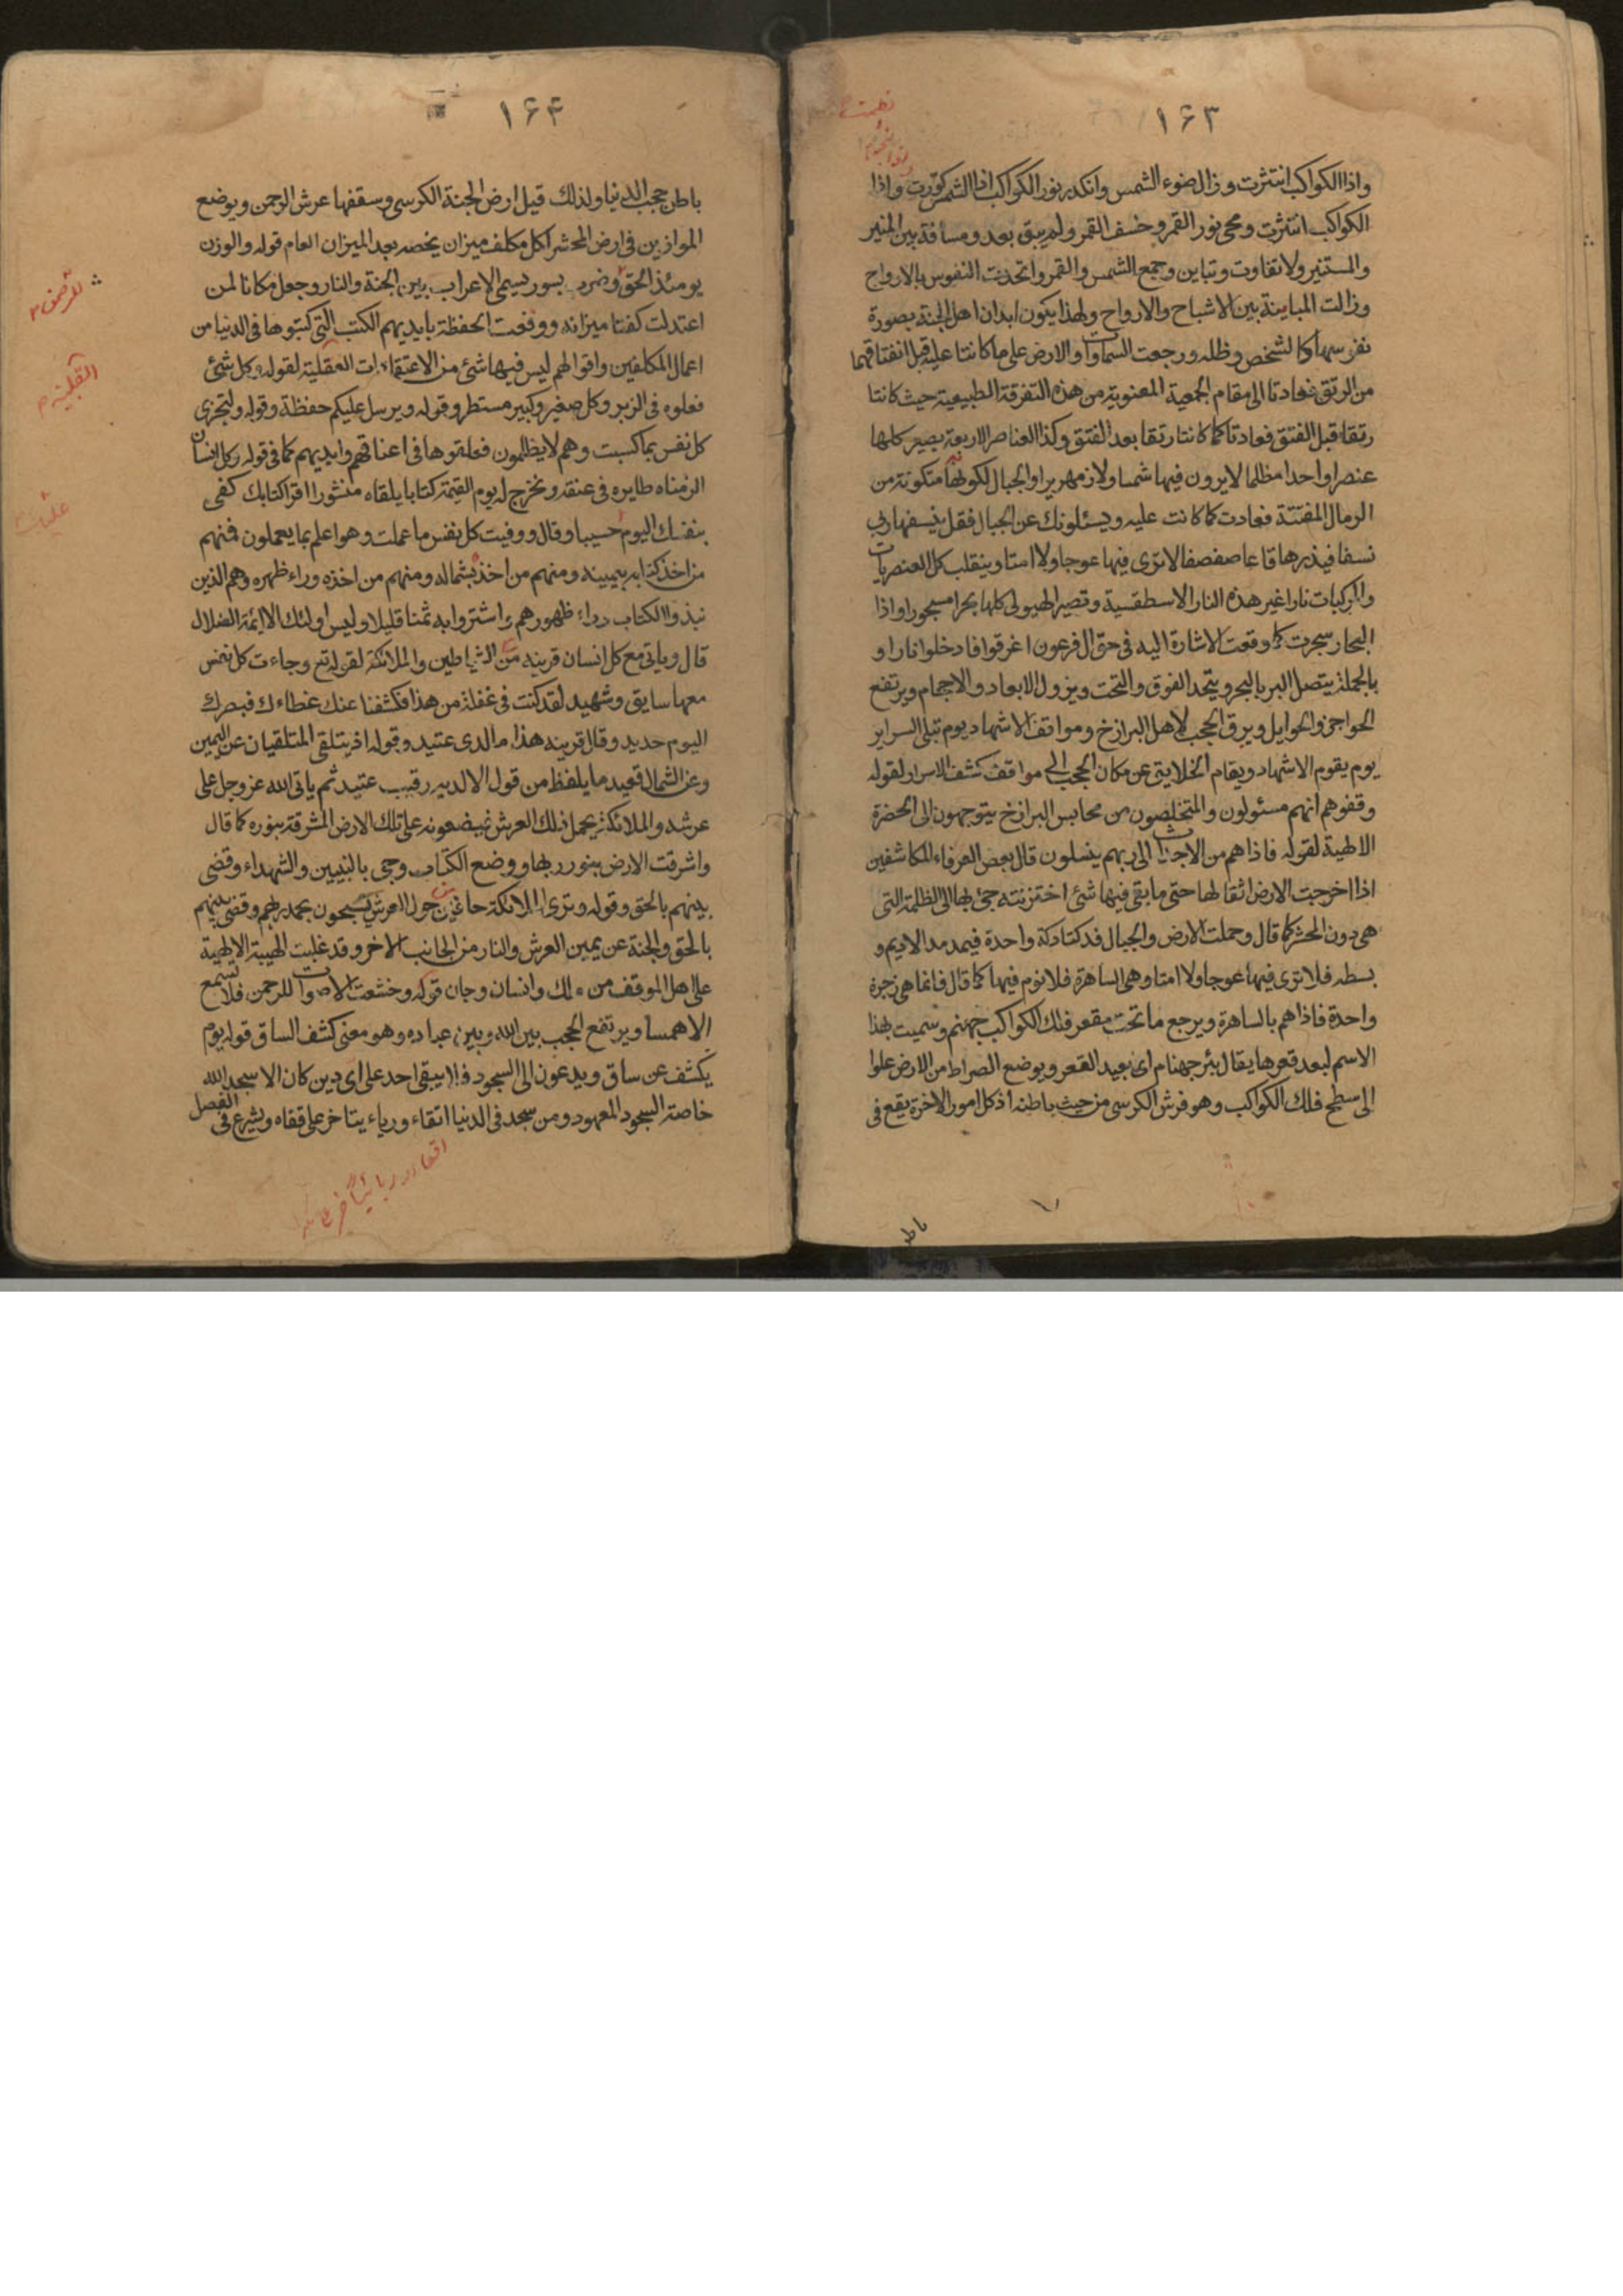 ۱۶۳
واذا الكواكب انتثرت وزال ضوء الشمس وانكدر نور الكواكب اذا الشمس كورت واذا
الكواكب انتثرت ومحى نور القمر وخسف القمر ولم يبق بعد ومسافة بين المنير
والمستنير ولا تفاوت وتباين وجمع الشمس والقمر واتحدت النفوس بالارواح
وزالت المباينة بين الاشباح والارواح ولهذا يكون ابدان اهل الجنة بصورة
نفوسها كالشخص وظله ورجعت السماوات والارض على ما كانتا عليه قبل انفتاقهما
من الرتق فعادتا الى مقام الجمعية المعنوية من هذه التفرقة الطبيعية حيث كانتا
رتقا قبل الفتق فعادتا كما كانتا رتقا بعد الفتق وكذا العناصر الاربعة يصير كلها
عنصرا واحدا مظلما لا يرون فيها شمسا ولا زمهريرا والجبال لكونها متكونة من
الرمال المفتتة فعادت كما كانت عليه ويسئلونك عن الجبال فقل ينسفها ربي
نسفا فيذرها قاعا صفصفا لا ترى فيها عوجا ولا امتا وينقلب كل العنصريات
والمركبات نارا غير هذه النار الاسطقسية وتصير الهيولى كلها بحرا مسجورا واذا
البحار سجرت كما وقعت الاشارة اليه في حق ال فرعون اغرقوا فادخلوا نارا و
بالجملة يتصل البر بالبحر ويتحد الفوق والتحت ويزول الابعاد والاجمام ويرتفع
الحواجز والحوايل ويرق الحجب لاهل البرازخ ومواقف الاشهاد يوم تبلى السرائر
يوم يقوم الاشهاد ويقام الخلايق عن مكان الحجب الى مواقف كشف الاسرار لقوله
وقفوهم انهم مسئولون والمتخلصون من محابس البرازخ يتوجهون الى الحضرة
الالهية لقوله فاذا هم من الاجداث الى ربهم ينسلون قال بعض العرفاء المكاشفين
اذا اخرجت الارض اثقالها حتى ما بقى فيها شئ اختزنته جئ بها الى الظلمة التى
هى دون المحشر كما قال وحملت الارض والجبال فدكتا دكة واحدة فيمد مد الاديم و
بسطه فلا ترى فيها عوجا ولا امتا وهى الساهرة فلا نوم فيها كما قال فانما هى زجرة
واحدة فاذا هم بالساهرة ويرجع ما تحت مقعر فلك الكواكب جهنم وسميت بهذا
الاسم لبعد قعرها يقال بئر جهنام اى بعيد القعر ويوضع الصراط من الارض علوا
الى سطح فلك الكواكب وهو فرش الكرسى من حيث باطنه اذ كل امور الاخرة يقع فى
۱۶۴
باطن حجب الدنيا ولذلك قيل ارض الجنة الكرسى وسقفها عرش الرحمن ويوضع
الموازين فى ارض المحشر لكل مكلف ميزان يخصه بعد الميزان العام قوله والوزن
يومئذ الحق وضرب بسور يسمى الاعراب بين الجنة والنار وجعل مكانا لمن
اعتدلت كفتا ميزانه ووقعت الحفظة بايديهم الكتب التى كتبوها فى الدنيا من
اعمال المكلفين واقوالهم ليس فيها شئ من الاعتقادات العقلية لقوله وكل شئ
فعلوه فى الزبر وكل صغير وكبير مستطر وقوله ويرسل عليكم حفظة وقوله ولتجزى
كل نفس بما كسبت وهم لا يظلمون فعلقوها فى اعناقهم وايديهم كما فى قوله وكل انسان
الزمناه طايره فى عنقه ونخرج له يوم القيمة كتابا يلقاه منشورا اقرا كتابك كفى
بنفسك اليوم حسيبا وقال ووفيت كل نفس ما عملت وهو اعلم بما يعملون فمنهم
من اخذ كتابه بيمينه ومنهم من اخذ بشماله ومنهم من اخذه وراء ظهره وهم الذين
نبذوا الكتاب وراء ظهورهم واشتروا به ثمنا قليلا وليس اولئك الا الائمة الضلال
قال وياتى مع كل انسان قرينه من الشياطين والملائكة لقوله تع وجاءت كل نفس
معها سايق وشهيد لقد كنت فى غفلة من هذا فكشفنا عنك غطاءك فبصرك
اليوم حديد وقال قرينه هذا ما لدى عتيد وقوله اذ يتلقى المتلقيان عن اليمين
وعن الشمال قعيد ما يلفظ من قول الا لديه رقيب عتيد ثم ياتى الله عز وجل على
عرشه والملائكة يحمل ذلك العرش فيضعونه على تلك الارض المشرقة بنوره كما قال
واشرقت الارض بنور ربها ووضع الكتاب وجئ بالنبيين والشهداء وقضى
بينهم بالحق وقوله وترى الملائكة حافين حول العرش يسبحون بحمد ربهم وقضى بينهم
بالحق والجنة عن يمين العرش والنار من الجانب الاخر وقد غلبت الهيبة الالهية
على اهل الموقف من ملك وانسان وجان قوله وخشعت الاصوات للرحمن فلا تسمع
الا همسا ويرتفع الحجب بين الله وبين عباده وهو معنى كشف الساق قوله يوم
يكشف عن ساق ويدعون الى السجود فلا يبقى احد على اى دين كان الا سجد الله
خاصة السجود المعهود ومن سجد فى الدنيا اتقاء ورياء يتاخر على قفاه ويشرع فى الفصل